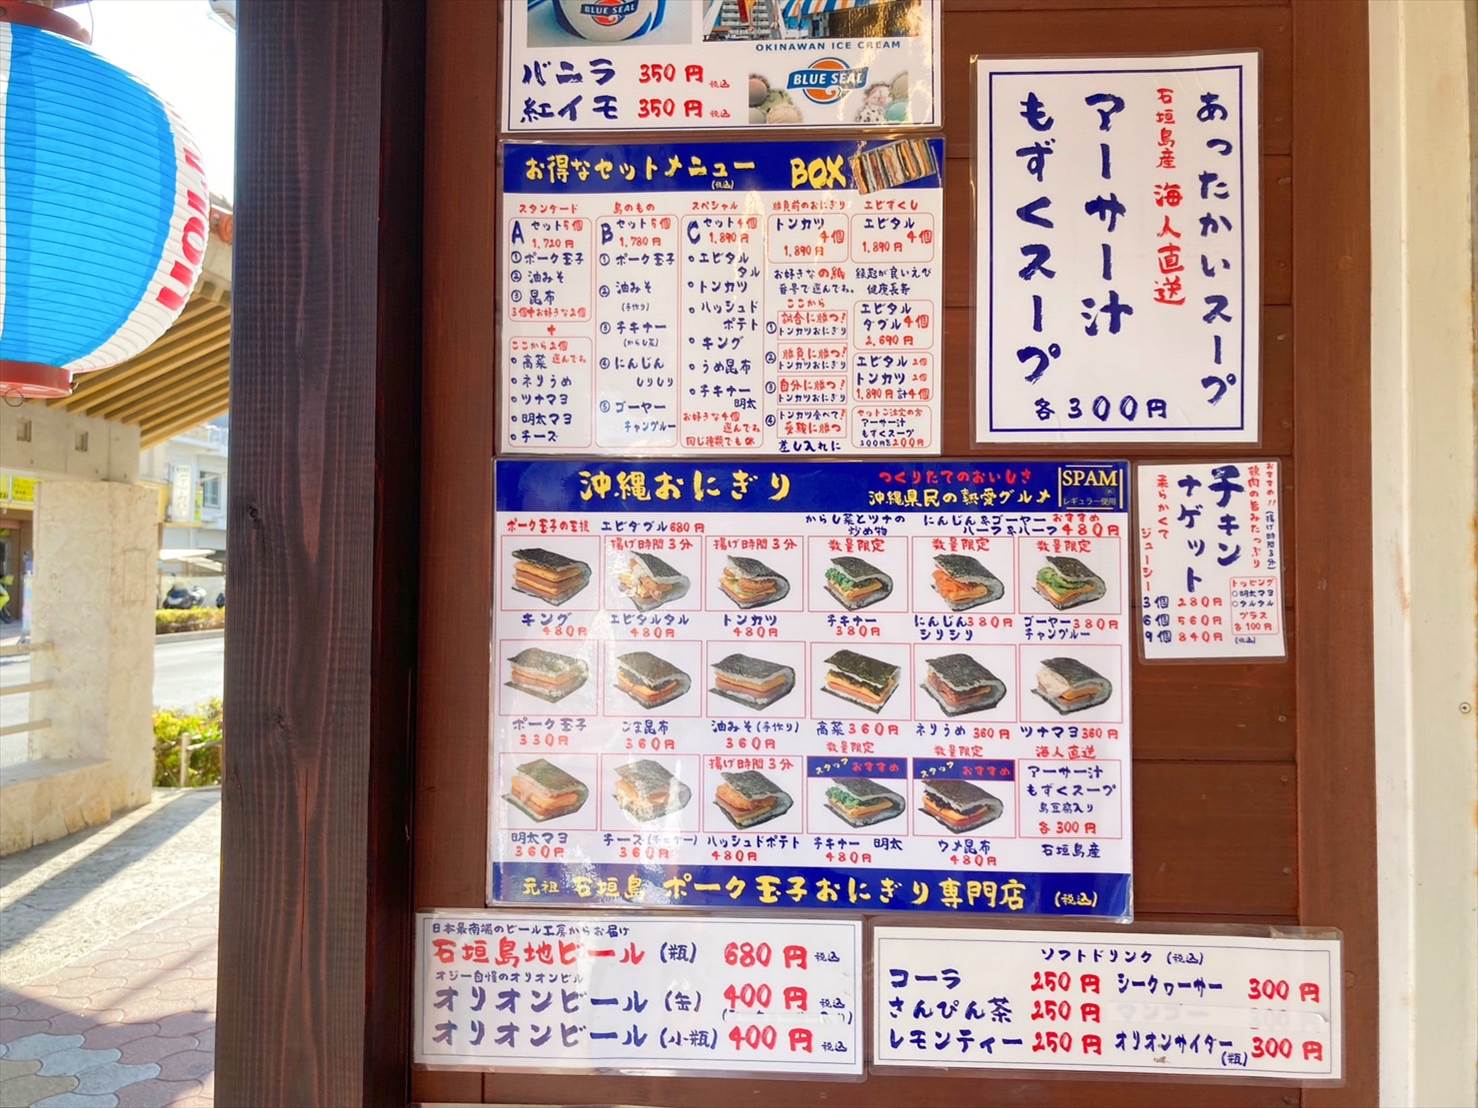 BLUE SEAL
OKINAWAN ICE CREAM
BLUE SEAL
バニラ 350円 税込
紅イモ 350円 税込
お得なセットメニュー (税込) BOX
スタンダード
A セット5個
1,720円
①ポーク玉子
②油みそ
③昆布
3個中お好きな2個
+
ここから2個
選んでね
高菜
ネリうめ
ツナマヨ
明太マヨ
チーズ
島のもの
B セット5個
1,780円
①ポーク玉子
②油みそ
(手作り)
③チキナー
(からし菜)
④にんじん
しりしり
⑤ゴーヤー
チャンプルー
スペシャル
C セット4個
1,890円
エビタル
タル
トンカツ
ハッシュド
ポテト
キング
うめ昆布
チキナー
明太
お好きな4個
選んでね
同じ種類でもOK
勝負前のおにぎり
トンカツ
4個
1,890円
お好きなの紙
番号で選んでね。
ここから
①試合に勝つ!
トンカツおにぎり
②勝負に勝つ!
トンカツおにぎり
③自分に勝つ!
トンカツおにぎり
④トンカツ食べて!
受験に勝つ
差し入れに
エビずくし
エビタル
4個
1,890円
縁起が良いえび
健康長寿
エビタル
ダブル4個
2,690円
エビタル 2個
トンカツ 2個
1,890円 計4個
セットご注文の方
アーサー汁
もずくスープ
300円を200円
あったかいスープ
石垣島産 海人直送
アーサー汁
もずくスープ
各300円
沖縄おにぎり
つくりたてのおいしさ
沖縄県民の熱愛グルメ
SPAM
レギュラー使用
ポーク玉子の王様 エビダブル680円
からし菜とツナの
炒め物
にんじん&ゴーヤー おすすめ
ハーフ&ハーフ480円
揚げ時間3分 揚げ時間3分 数量限定 数量限定 数量限定
キング
480円
エビタルタル
480円
トンカツ
480円
チキナー
380円
にんじん380円
シリシリ
ゴーヤー380円
チャンプルー
ポーク玉子
330円
ごま昆布
360円
油みそ(手作り)
360円
高菜360円
ネりうめ 360円
ツナマヨ360円
揚げ時間3分
数量限定
スタッフ おすすめ
数量限定
スタッフ おすすめ
海人直送
アーサー汁
もずくスープ
島豆腐入り
各300円
石垣島産
明太マヨ
360円
チーズ(チェダー)
360円
ハッシュドポテト
480円
チキナー 明太
480円
ウメ昆布
480円
元祖 石垣島 ポーク玉子おにぎり専門店 (税込)
おすすめ!!(揚げ時間3分)
鶏肉の旨みたっぷり
チキン
ナゲット
柔らかくて
ジューシー
3個 280円
6個 560円
9個 840円
トッピング
○明太マヨ
○タルタル
プラス
各100円
(税込)
日本最南端のビール工房からお届け
石垣島地ビール (瓶) 680円 税込
オジー自慢のオリオンビール
オリオンビール (缶) 400円 税込
オリオンビール (小瓶) 400円 税込
ソフトドリンク (税込)
コーラ 250円
さんぴん茶 250円
レモンティー 250円
シークヮーサー 300円
オリオンサイダー
(瓶) 300円